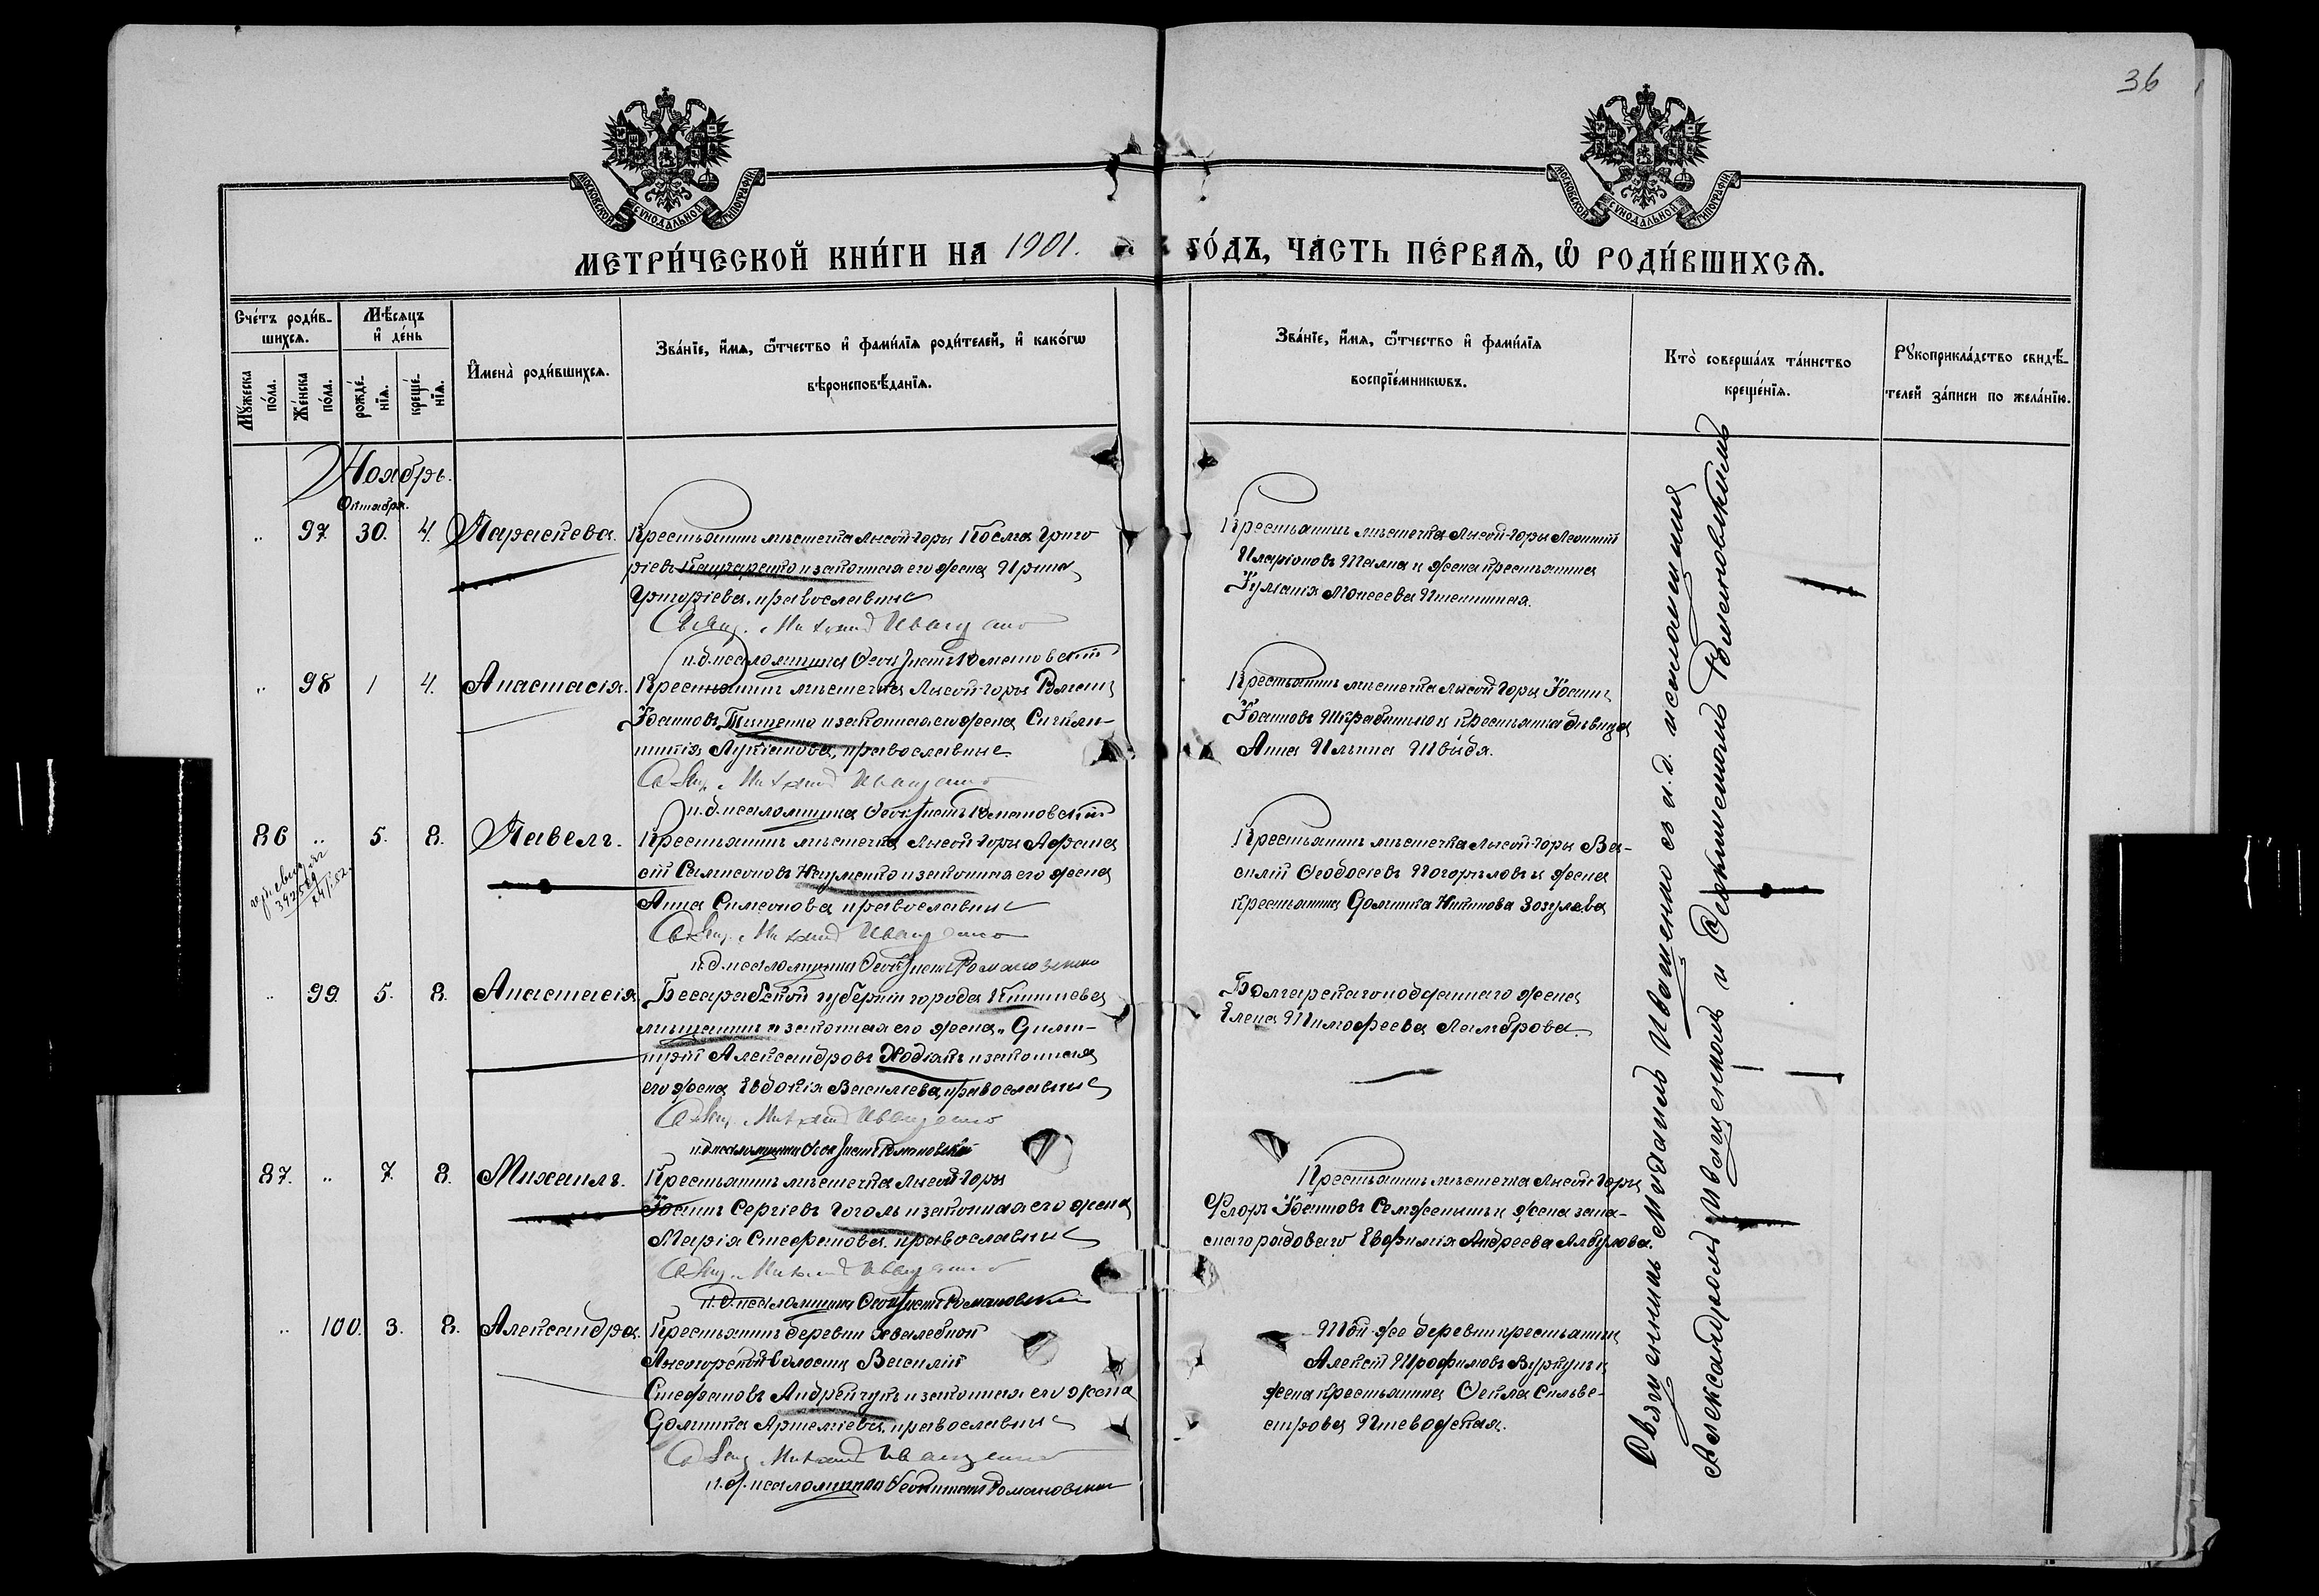 36
МОСКОВСКОЙ СѴНОДАЛЬНОЙ ТИПОГРАФІИ
МОСКОВСКОЙ СѴНОДАЛЬНОЙ ТИПОГРАФІИ
МЕТРИ́ЧЕСКОЙ КНИ́ГИ НА 1901. ГО́ДЪ, ЧАСТЬ ПЕ́РВАѦ, Ѡ҆ РОДИ́ВШИХСѦ.
Сче́тъ роди́в-
шихсѧ.
Мꙋ́жеска по́ла.
Же́нска по́ла.
Мѣ́сѧцъ
и҆ де́нь
рожде́-
нїѧ.
креще́-
нїѧ.
И҆мена̀ роди́вшихсѧ.
Зва́нїе, и҆́мѧ, ѻ҆́тчество и҆ фами́лїѧ роди́телей, и҆ како́гѡ
вѣроисповѣ́данїѧ.
Зва́нїе, и҆́мѧ, ѻ҆́тчество и҆ фами́лїѧ
воспрїе́мникѡвъ.
Кто̀ соверша́лъ та́инство
креще́нїѧ.
Рꙋкоприкла́дство свидѣ́-
телей за́писи по жела́нїю.
Ноябрь.
Октября.
„ 97. 30. 4. Параскева.
Крестьянинъ мѣстечка Лысой-Горы Косма Григо
ріевъ и законная его жена Ирина
Григоріева, православные
Свящ. Михаилъ Иващенко
и.д. псаломщика Ѳеоктистъ Романовскій
Крестьянинъ мѣстечка Лысой-Горы Леонтій
Иларіоновъ и жена крестьянина
Іуліанія Моисеева
„ 98 1 4. Анастасія.
Крестьянинъ мѣстечка Лысой-Горы Романъ
Іоанновъ Тищенко и законная его жена Синкли-
тикія Лукіанова, православные.
Свящ. Михаилъ Иващенко
и.д. псаломщика Ѳеоктистъ Романовскій
Крестьянинъ мѣстечка Лысой Горы Іоаннъ
Іоанновъ и крестьянка дѣвица
Анна Ильина Швыдя.
86 „ 5. 8. Павелъ.
Крестьянинъ мѣстечка Лысой-Горы Афана
сій Симеоновъ Науменко и законная его жена
Анна Симеонова православные
Свящ. Михаилъ Иващенко
и.д. псаломщика Ѳеоктистъ Романовскій
Крестьянинъ мѣстечка Лысой-Горы Ва-
силій Ѳеодосіевъ Погориловъ и жена
крестьянина Домника Никитова Зозулева
„ 99. 5. 8. Анастасія.
Бесарабской губерніи города Кишинева
мѣщанинъ и законная его жена „Дими-
трій Александровъ и законная
его жена Евдокія Васильева, православные
Свящ. Михаилъ Иващенко
и.д. псаломщика Ѳеоктистъ Романовскій
Болгарскаго подданнаго жена
Елена Тимофеева Ламброва.
87. „ 7. 8. Михаилъ.
Крестьянинъ мѣстечка Лысой-Горы
Іоаннъ Сергіевъ Гоголь и законная его жена
Марія Стефанова, православные
Свящ. Михаилъ Иващенко
и.д. псаломщика Ѳеоктистъ Романовскій
Крестьянинъ мѣстечка Лысой Горы
Іоанновъ и жена запа-
снаго рядоваго Евфимія Андреева
„ 100. 3. 8. Александра.
Крестьянинъ деревни
Лысогорской волости Василій
Стефановъ и законная его жена
Домника Артеміева, православные
Свящ. Михаилъ Иващенко
и.д. псаломщика Ѳеоктистъ Романовскій
Той-же деревни крестьянинъ
Алексій Трофимовъ и
жена крестьянина Ѳекла Сильве-
строва
Священникъ Михаилъ Иващенко съ и.д. псаломщика
Александромъ Иващенкомъ и Ѳеоктистомъ Романовскимъ